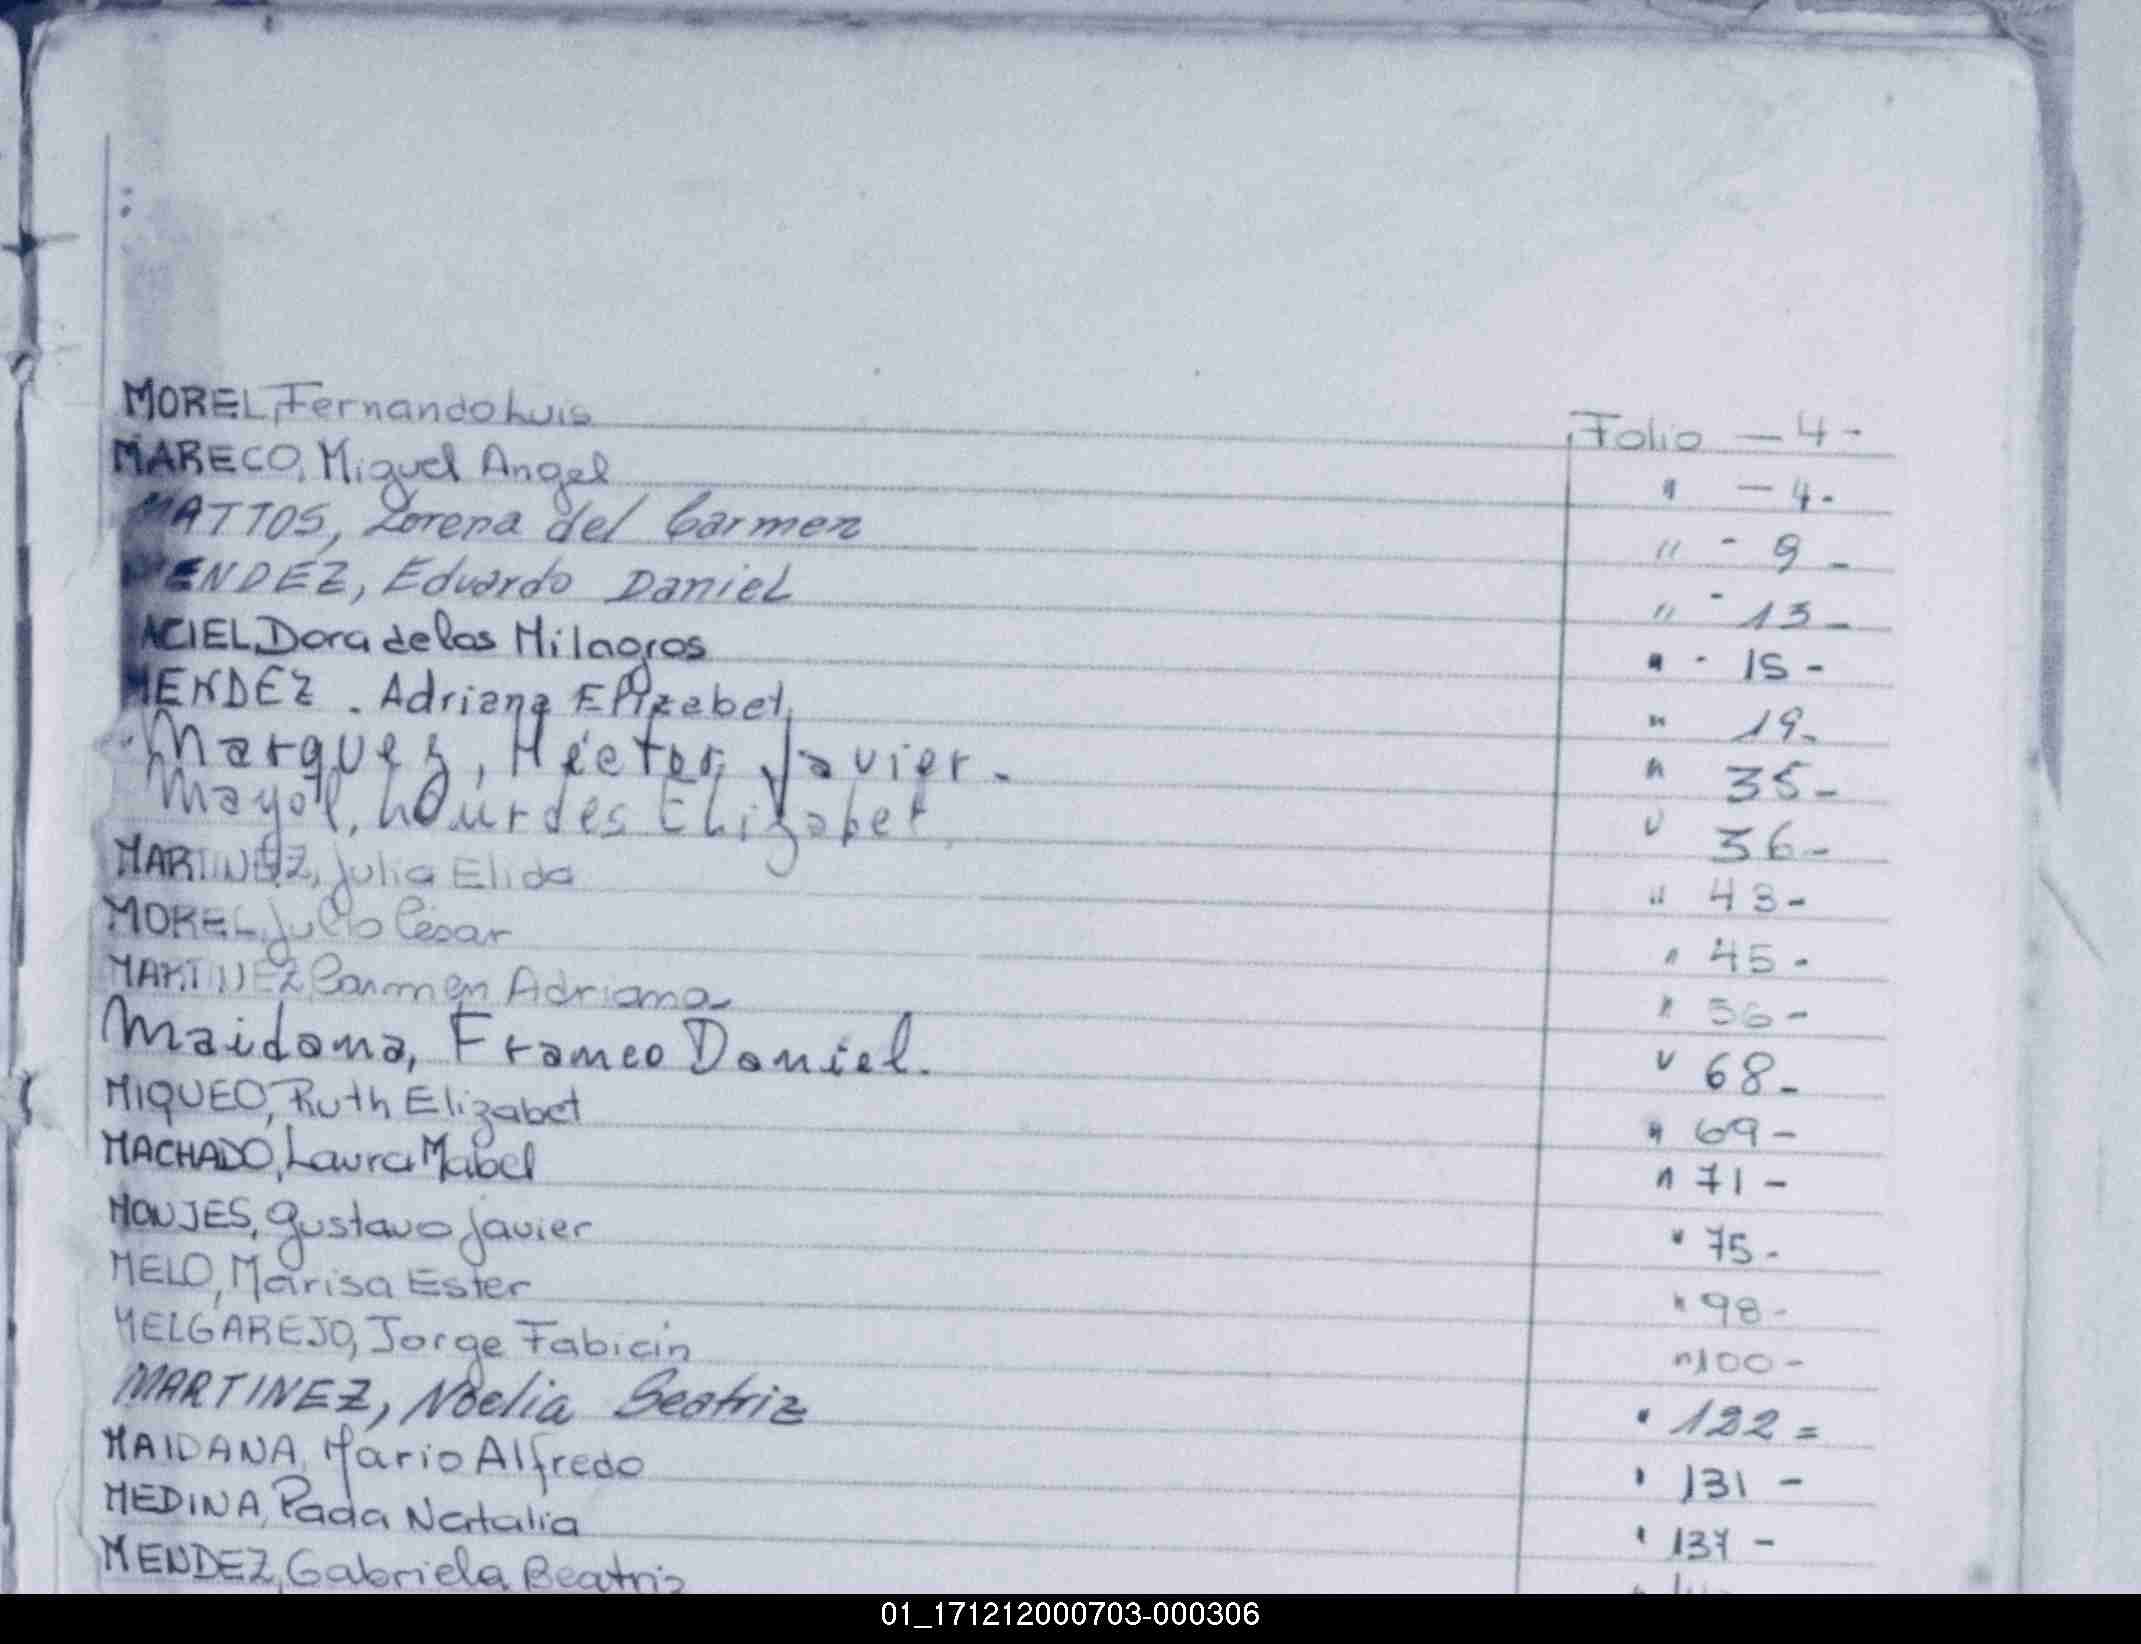 MOREL, Fernando Luis Folio — 4 -
MARECO, Miguel Angel " — 4 -
MATTOS, Lorena del Carmen " - 9 -
MENDEZ, Eduardo Daniel " - 13 -
ACIEL, Dora de los Milagros " - 15 -
MENDEZ. Adriana Elizabet " 19 -
Marquez, Héctor Javier. " 35 -
Mayol, Lourdes Elizabet " 36 -
MARTINEZ, Julia Elida " 43 -
MOREL, Julio César " 45 -
MARTINEZ, Carmen Adriana " 56 -
Maidana, Franco Daniel. " 68 -
MIQUEO, Ruth Elizabet " 69 -
MACHADO, Laura Mabel " 71 -
MONJES, Gustavo Javier " 75 -
MELO, Marisa Ester " 98 -
MELGAREJO, Jorge Fabián " 100 -
MARTINEZ, Noelia Beatriz " 122 =
MAIDANA, Mario Alfredo " 131 -
MEDINA, Natalia " -
MENDEZ, Gabriela Beatriz
01_171212000703-000306